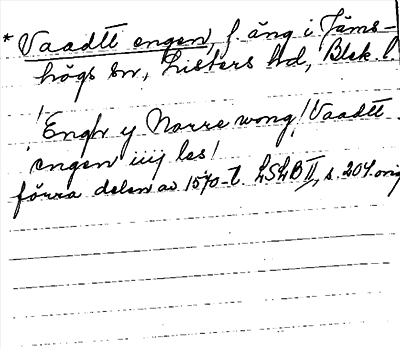 * Vaadtt engen, f. äng i Jäms-
högs sn, Listers hd, Blek. l.
! Engh y Norre wong! Vaadtt
engen iiij les!
förra delen av 1570-t. LSLB II, s. 204. orig